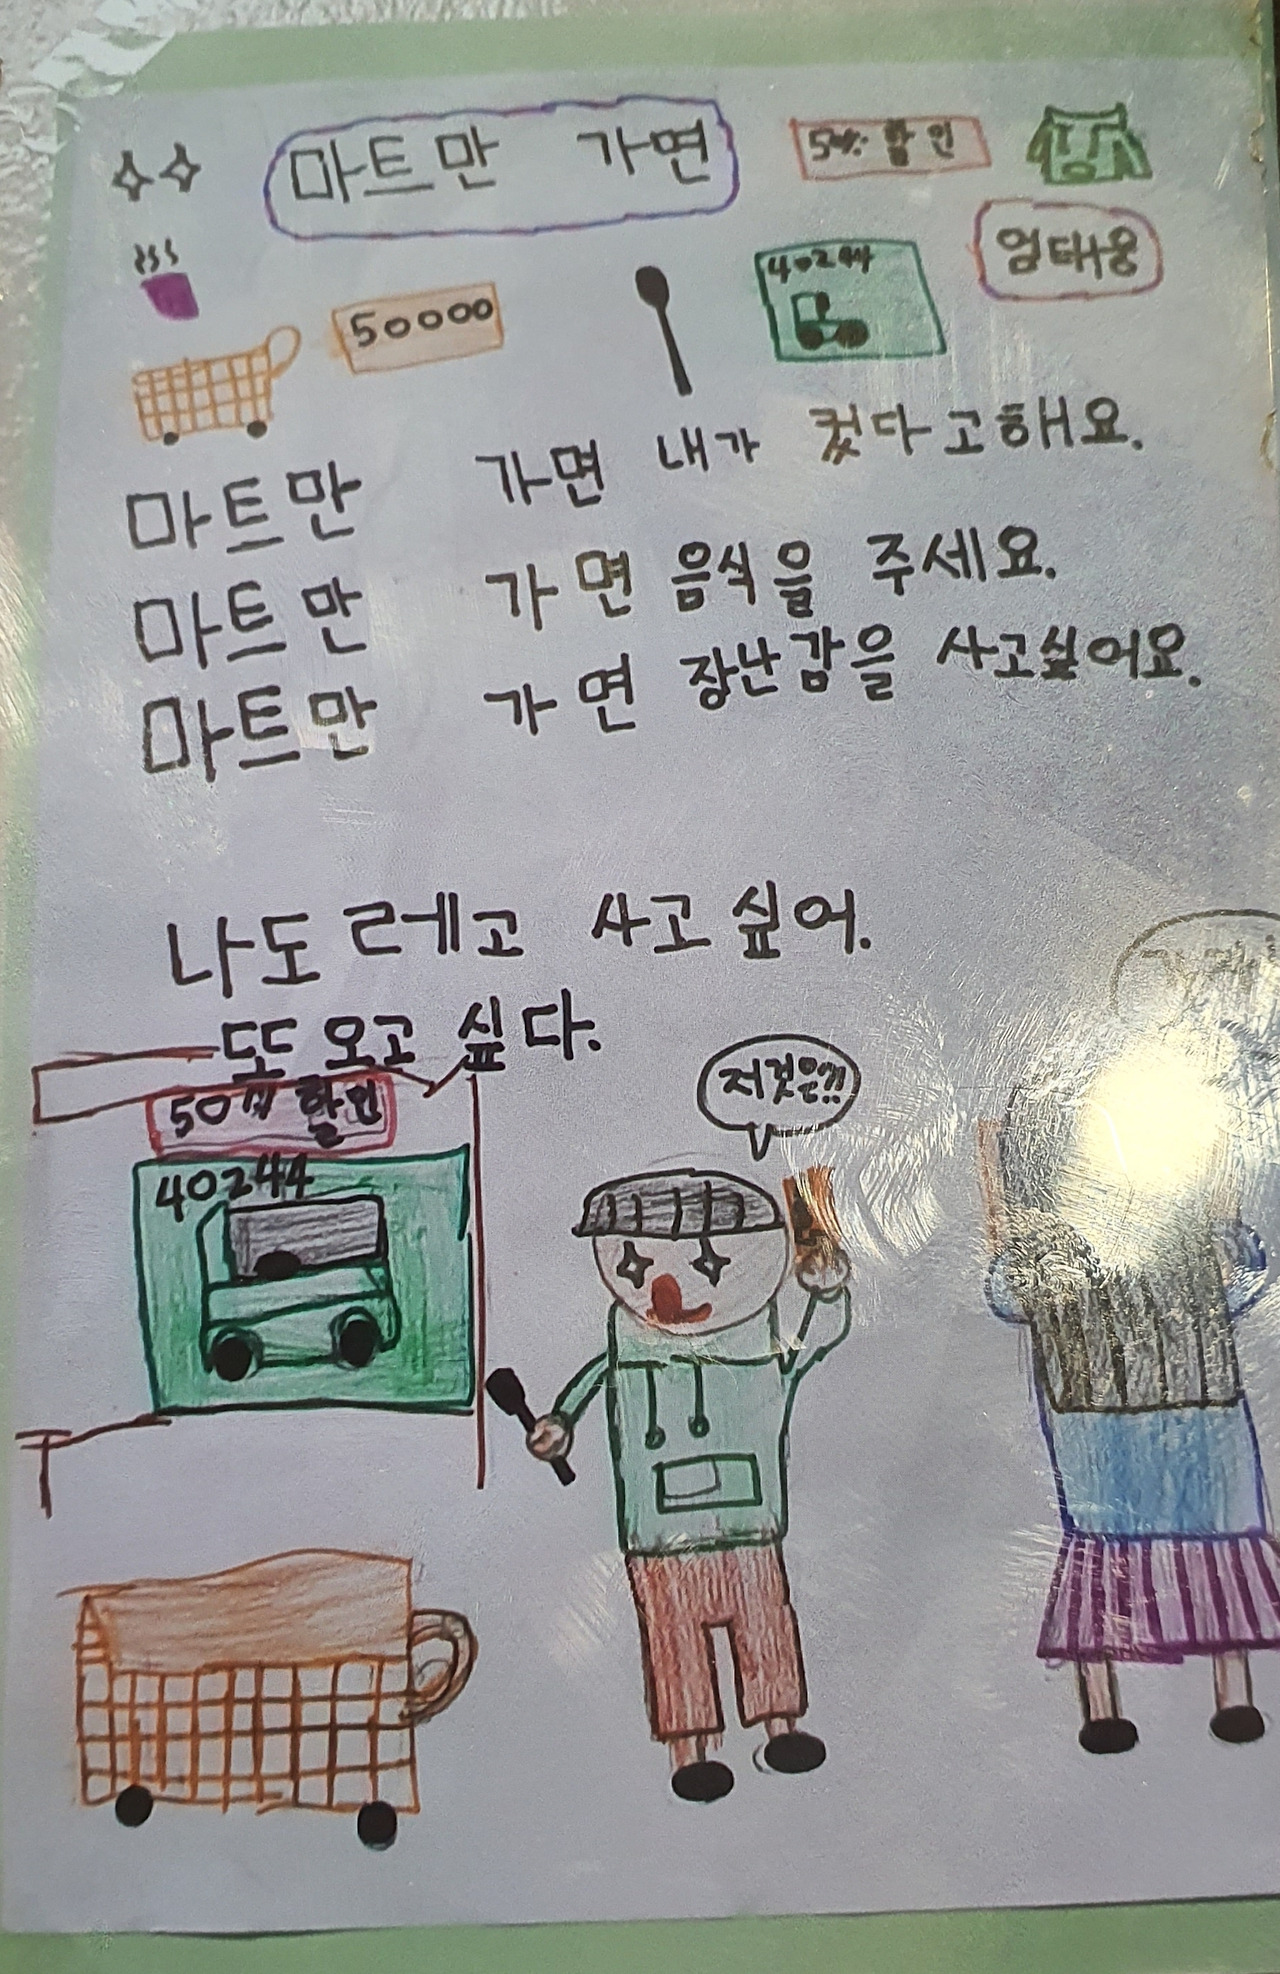 마트만 가면
50% 할인
엄태웅
50000
40244
마트만 가면 내가 컸다고해요.
마트만 가면 음식을 주세요.
마트만 가면 장난감을 사고싶어요.
나도 레고 사고 싶어.
또 오고 싶다.
50% 할인
저것은?!
40244